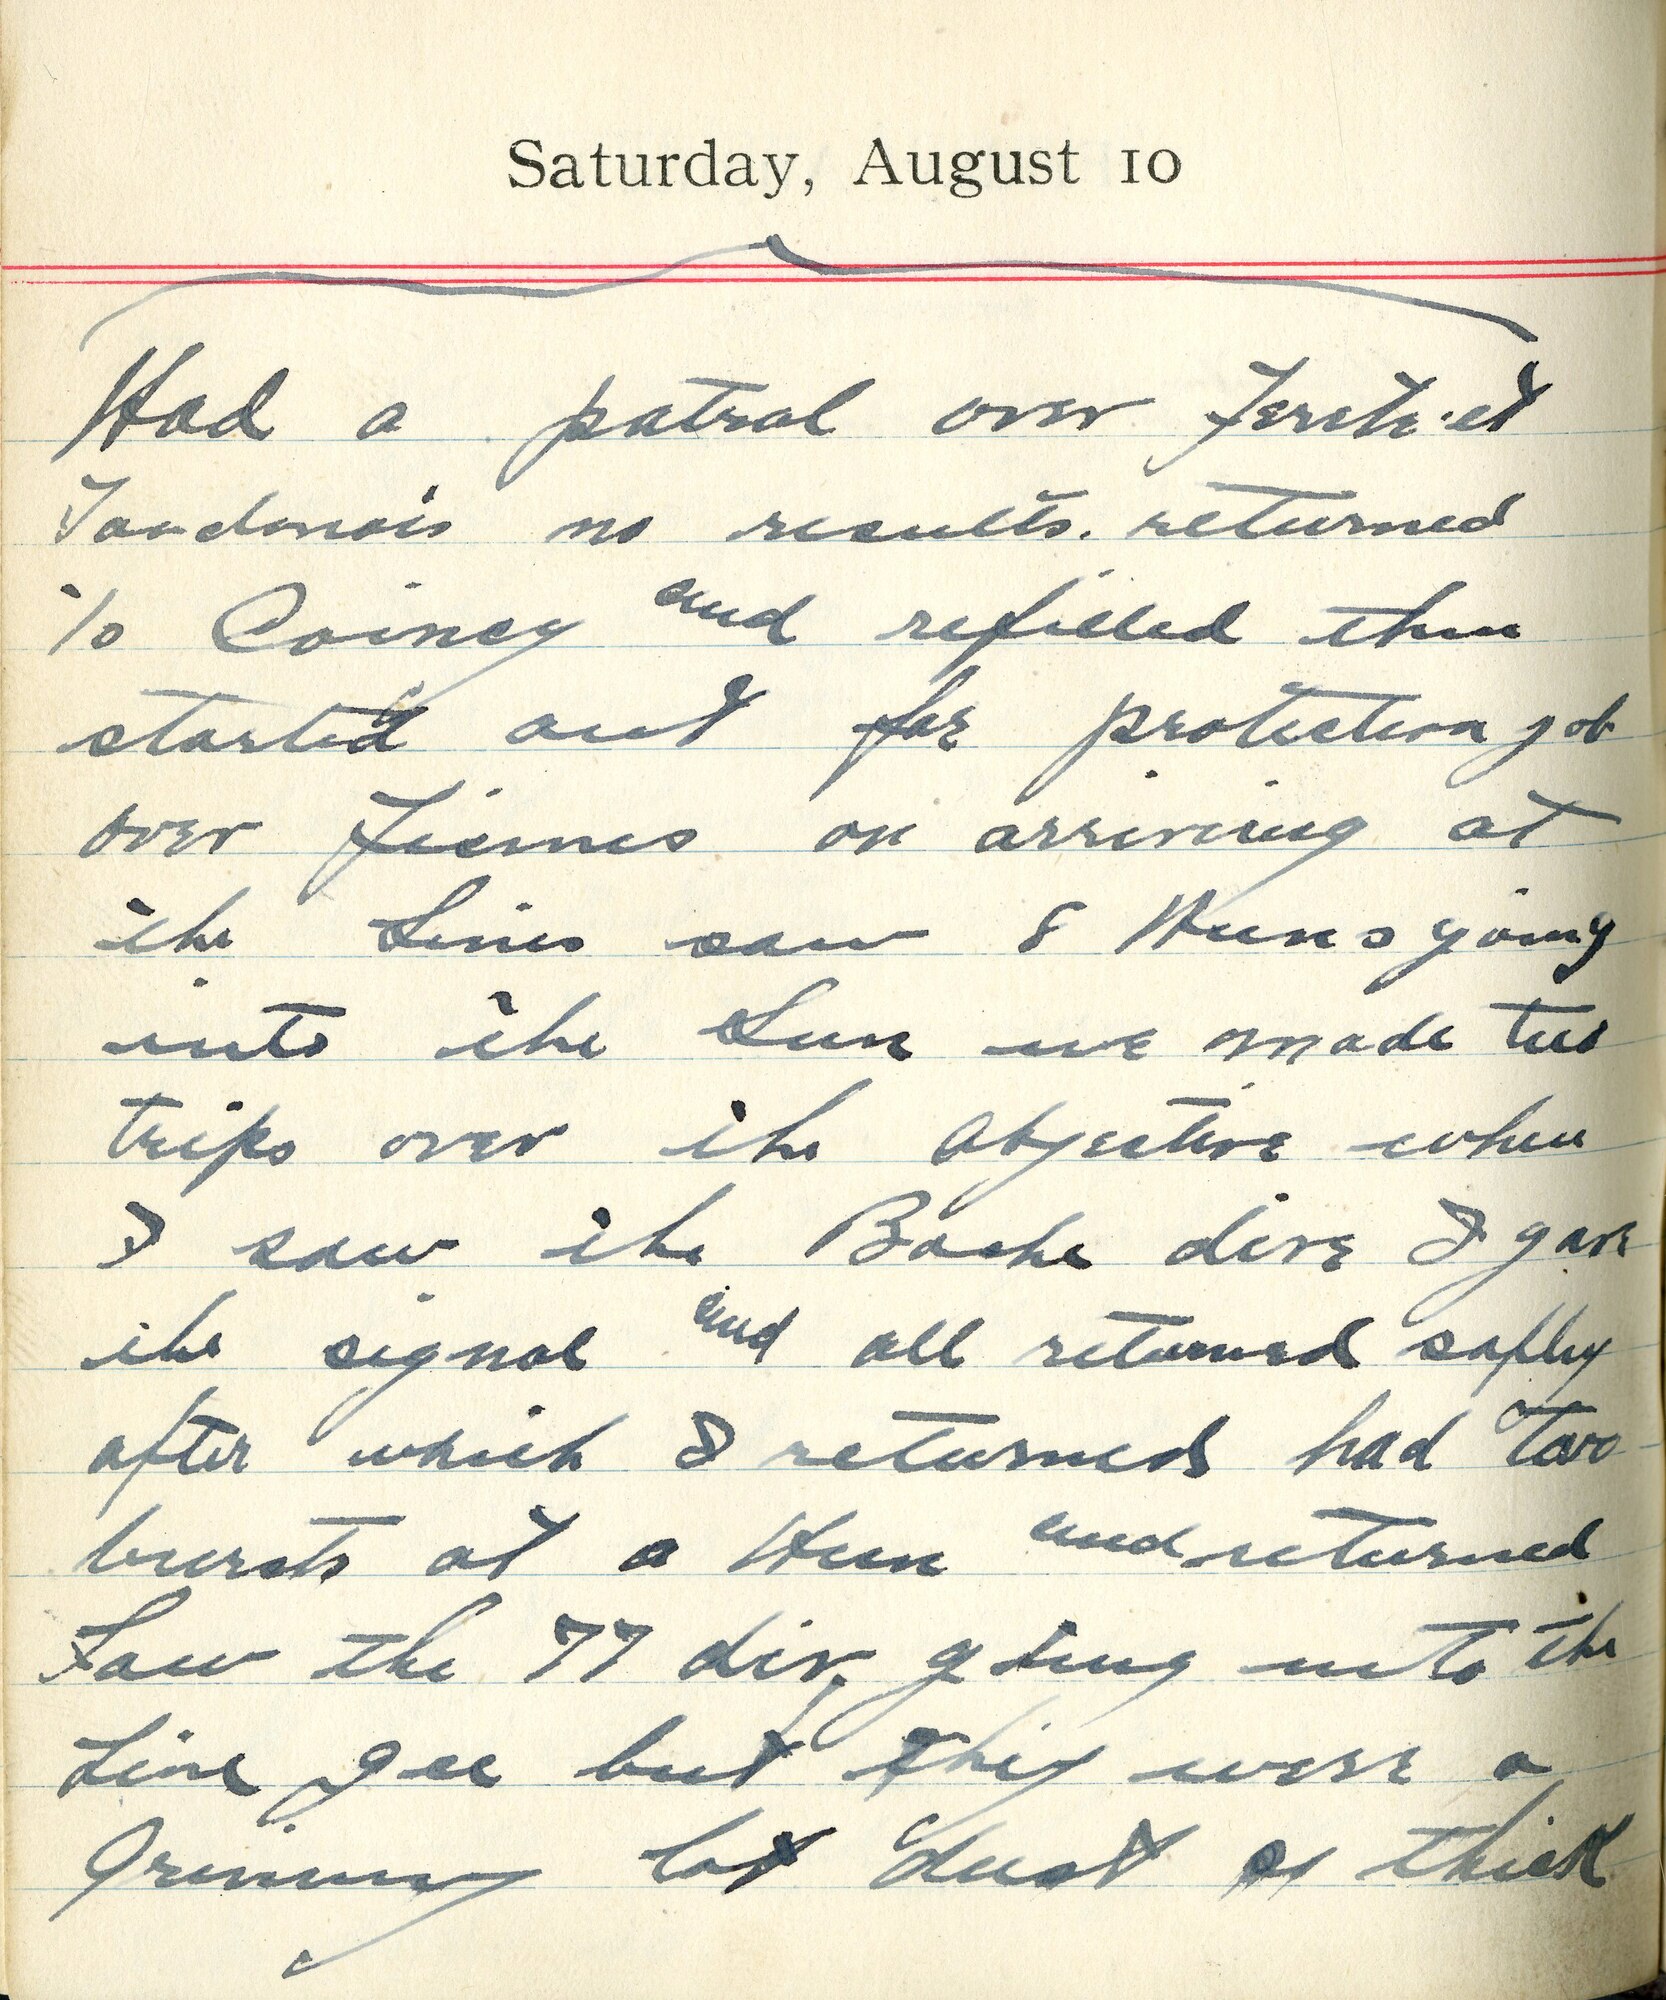 Saturday, August 10
Had a patrol over Ferete-et
Taudonais no results. returned
to Coincy and refilled then
started out for protection job
over Fismes on arriving at
the Lines saw 8 Huns going
into the Sun we made two
trips over the Objective when
I saw the Boche dive I gave
the signal and all returned saftly
after which I returned had two
bursts at a Hun and returned
Saw the 77 div, going into the
Line gee but they were a
Grimmy lot dust so thick